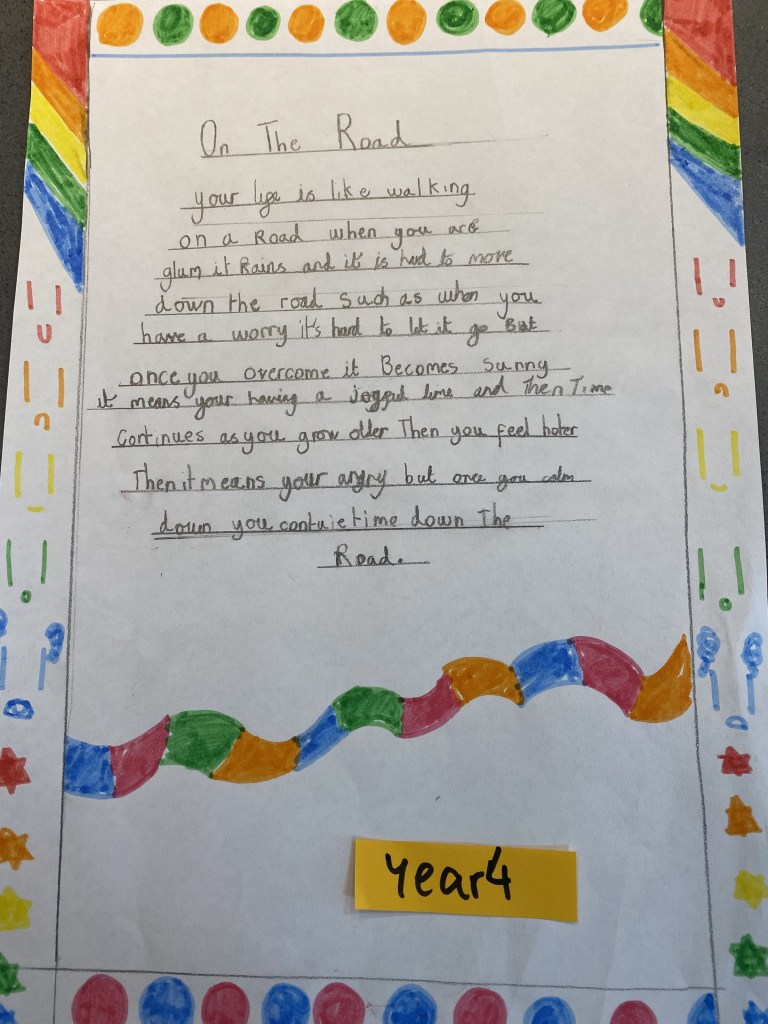 On The Road
your life is like walking
on a Road when you are
glum it Rains and it is hard to move
down the road Such as when you
have a worry it's hard to let it go But
once you overcome it Becomes Sunny
it means your having a joyful time and Then Time
Continues as you grow older Then you feel hoter
Then it means your angry but once you calm
down you contuie time down The
Road.
Year4